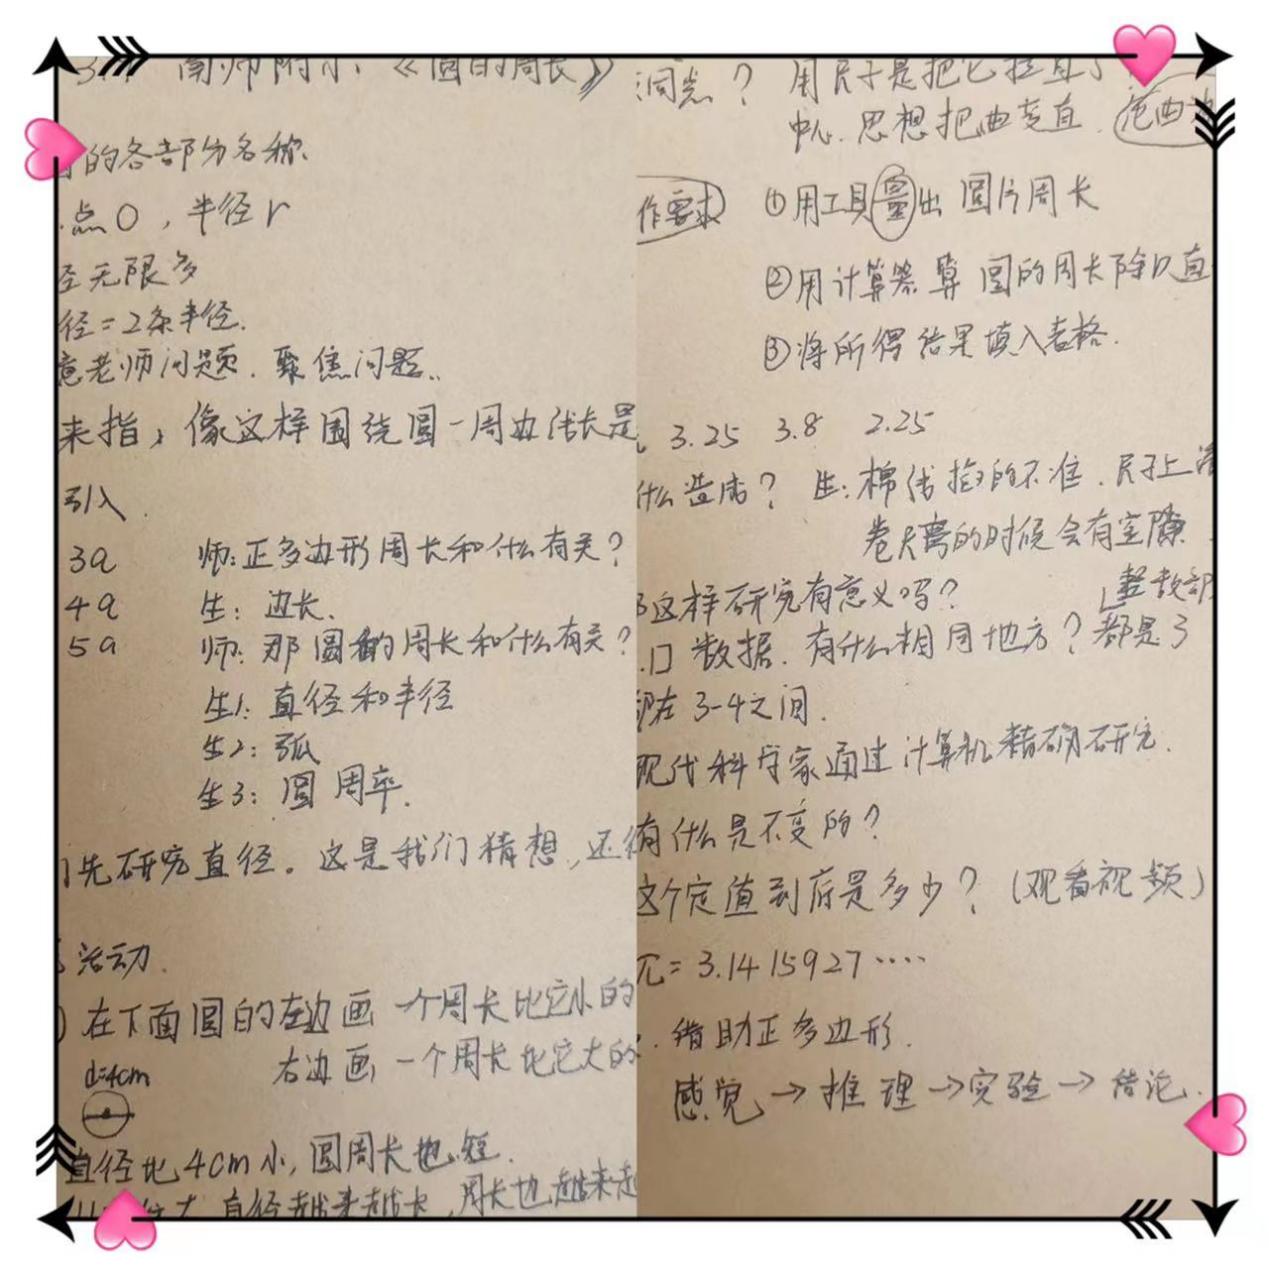 南师附小 《圆的周长》
的各部分名称.
点O，半径r
径无限多
径=2条半径.
意老师问题.聚焦问题.
来指，像这样围绕圆一周边线长是
引入.
3a 师:正多边形周长和什么有关?
4a 生: 边长.
5a 师: 那圆的周长和什么有关?
生1: 直径和半径
生2: 弧
生3: 圆周率.
们先研究直径。这是我们猜想,还
活动.
在下面圆的左边画一个周长比它小的
d=4cm 右边画一个周长比它大的
直径比4cm小,圆周长也短.
直径越来越长,周长也越来越
? 用尺子是把它拉直
中心思想把曲变直.
作要求 ①用工具量出圆片周长
②用计算器算圆的周长除以直
③将所得结果填入表格.
3.25 3.8 2.25
什么造成? 生:棉线拉的不准.尺子上
卷尺弯的时候会有空隙
这样研究有意义吗?
整数部
数据.有什么相同地方? 都是3
都在3-4之间.
现代科学家通过计算机精确研究.
有什么是不变的?
这个定值到底是多少? (观看视频)
π=3.1415927····
借助正多边形.
感觉→推理→实验→结论.